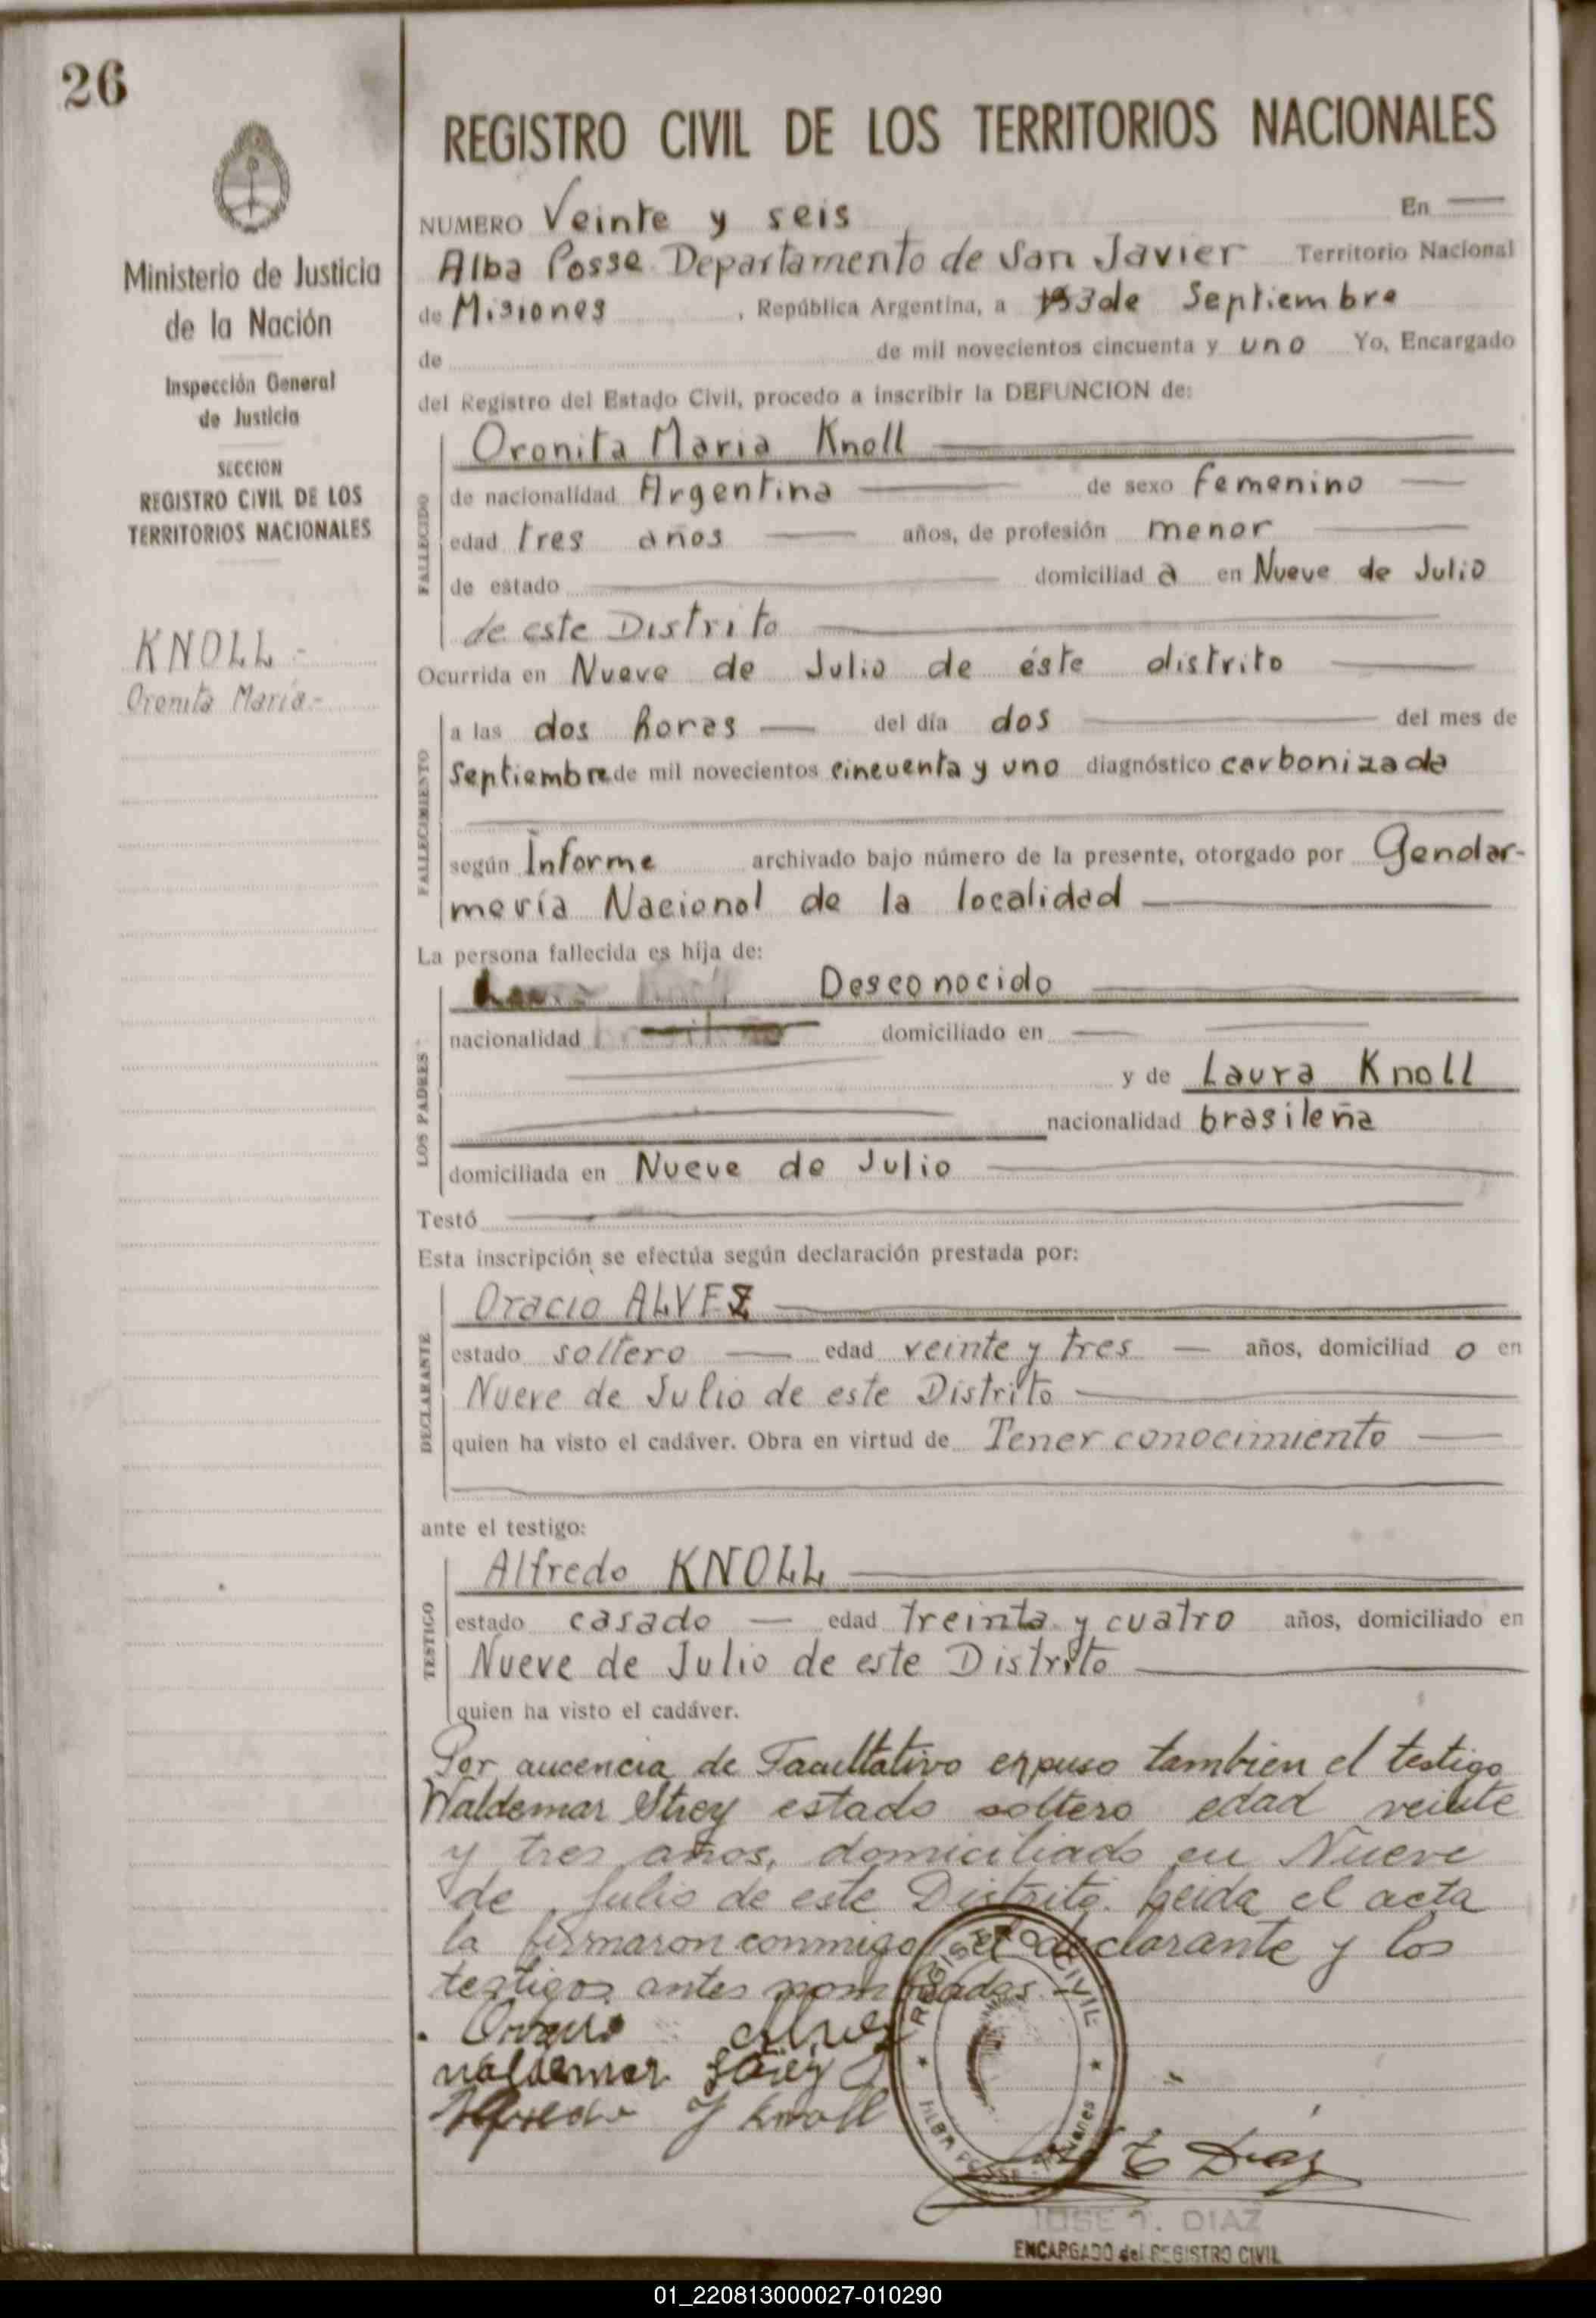 26
Ministerio de Justicia
de la Nación
Inspección General
de Justicia
SECCION
REGISTRO CIVIL DE LOS
TERRITORIOS NACIONALES
KNOLL -
Oronita María.-
REGISTRO CIVIL DE LOS TERRITORIOS NACIONALES
NUMERO Veinte y seis En
Alba Posse Departamento de San Javier Territorio Nacional
de Misiones, República Argentina, a 3 de Septiembre
de de mil novecientos cincuenta y uno Yo, Encargado
del Registro del Estado Civil, procedo a inscribir la DEFUNCION de:
FALLECIDO
Oronita Maria Knoll
de nacionalidad Argentina de sexo femenino
edad tres años años, de profesión menor
de estado domiciliad a en Nueve de Julio
de este Distrito
Ocurrida en Nueve de Julio de éste distrito
FALLECIMIENTO
a las dos horas del día dos del mes de
Septiembre de mil novecientos cincuenta y uno diagnóstico carbonizada
según Informe archivado bajo número de la presente, otorgado por Gendar-
mería Nacional de la localidad
La persona fallecida es hija de:
LOS PADRES
Desconocido
nacionalidad domiciliado en
y de Laura Knoll
nacionalidad brasileña
domiciliada en Nueve de Julio
Testó
Esta inscripción se efectúa según declaración prestada por:
DECLARANTE
Oracio ALVEZ
estado soltero edad veinte y tres años, domiciliad o en
Nueve de Julio de este Distrito
quien ha visto el cadáver. Obra en virtud de Tener conocimiento
ante el testigo:
TESTIGO
Alfredo KNOLL
estado casado edad treinta y cuatro años, domiciliado en
Nueve de Julio de este Distrito
quien ha visto el cadáver.
Por aucencia de Facultativo expuso tambien el testigo
Waldemar Strey estado soltero edad veinte
y tres años, domiciliado en Nueve
de Julio de este Distrito. Leida el acta
la firmaron conmigo el declarante y los
testigos antes nombrados.-
Oracio Alvez
Waldemar Strey
Alfredo J Knoll
REGISTRO CIVIL
ALBA POSSE
T Diaz
JOSE T. DIAZ
ENCARGADO del REGISTRO CIVIL
01_220813000027-010290